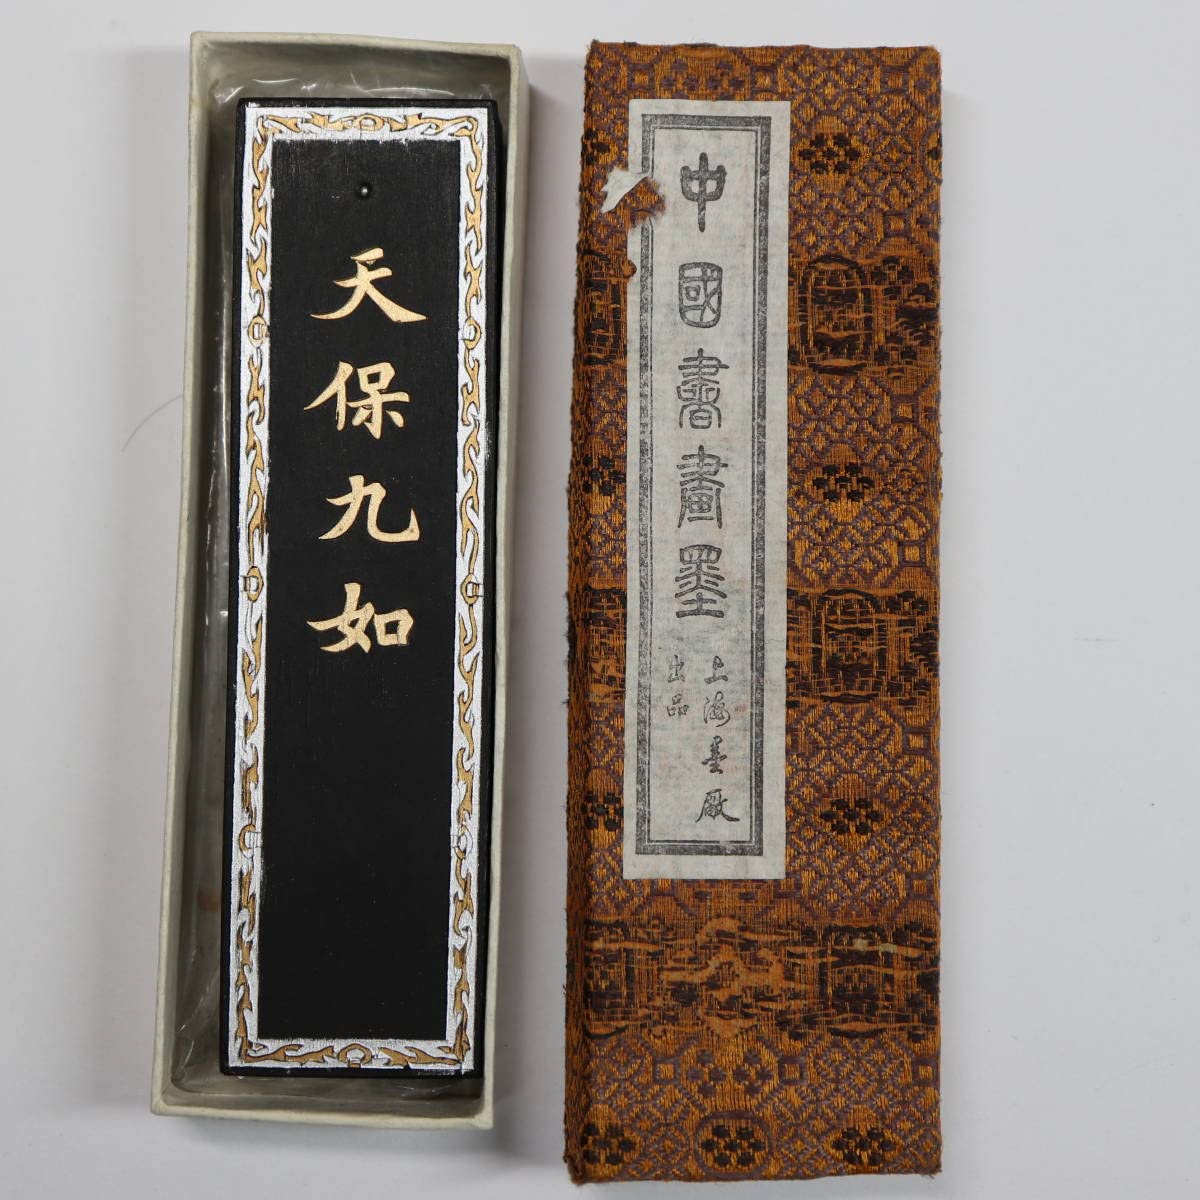 天保九如
中國書畫墨
上海墨廠
出品